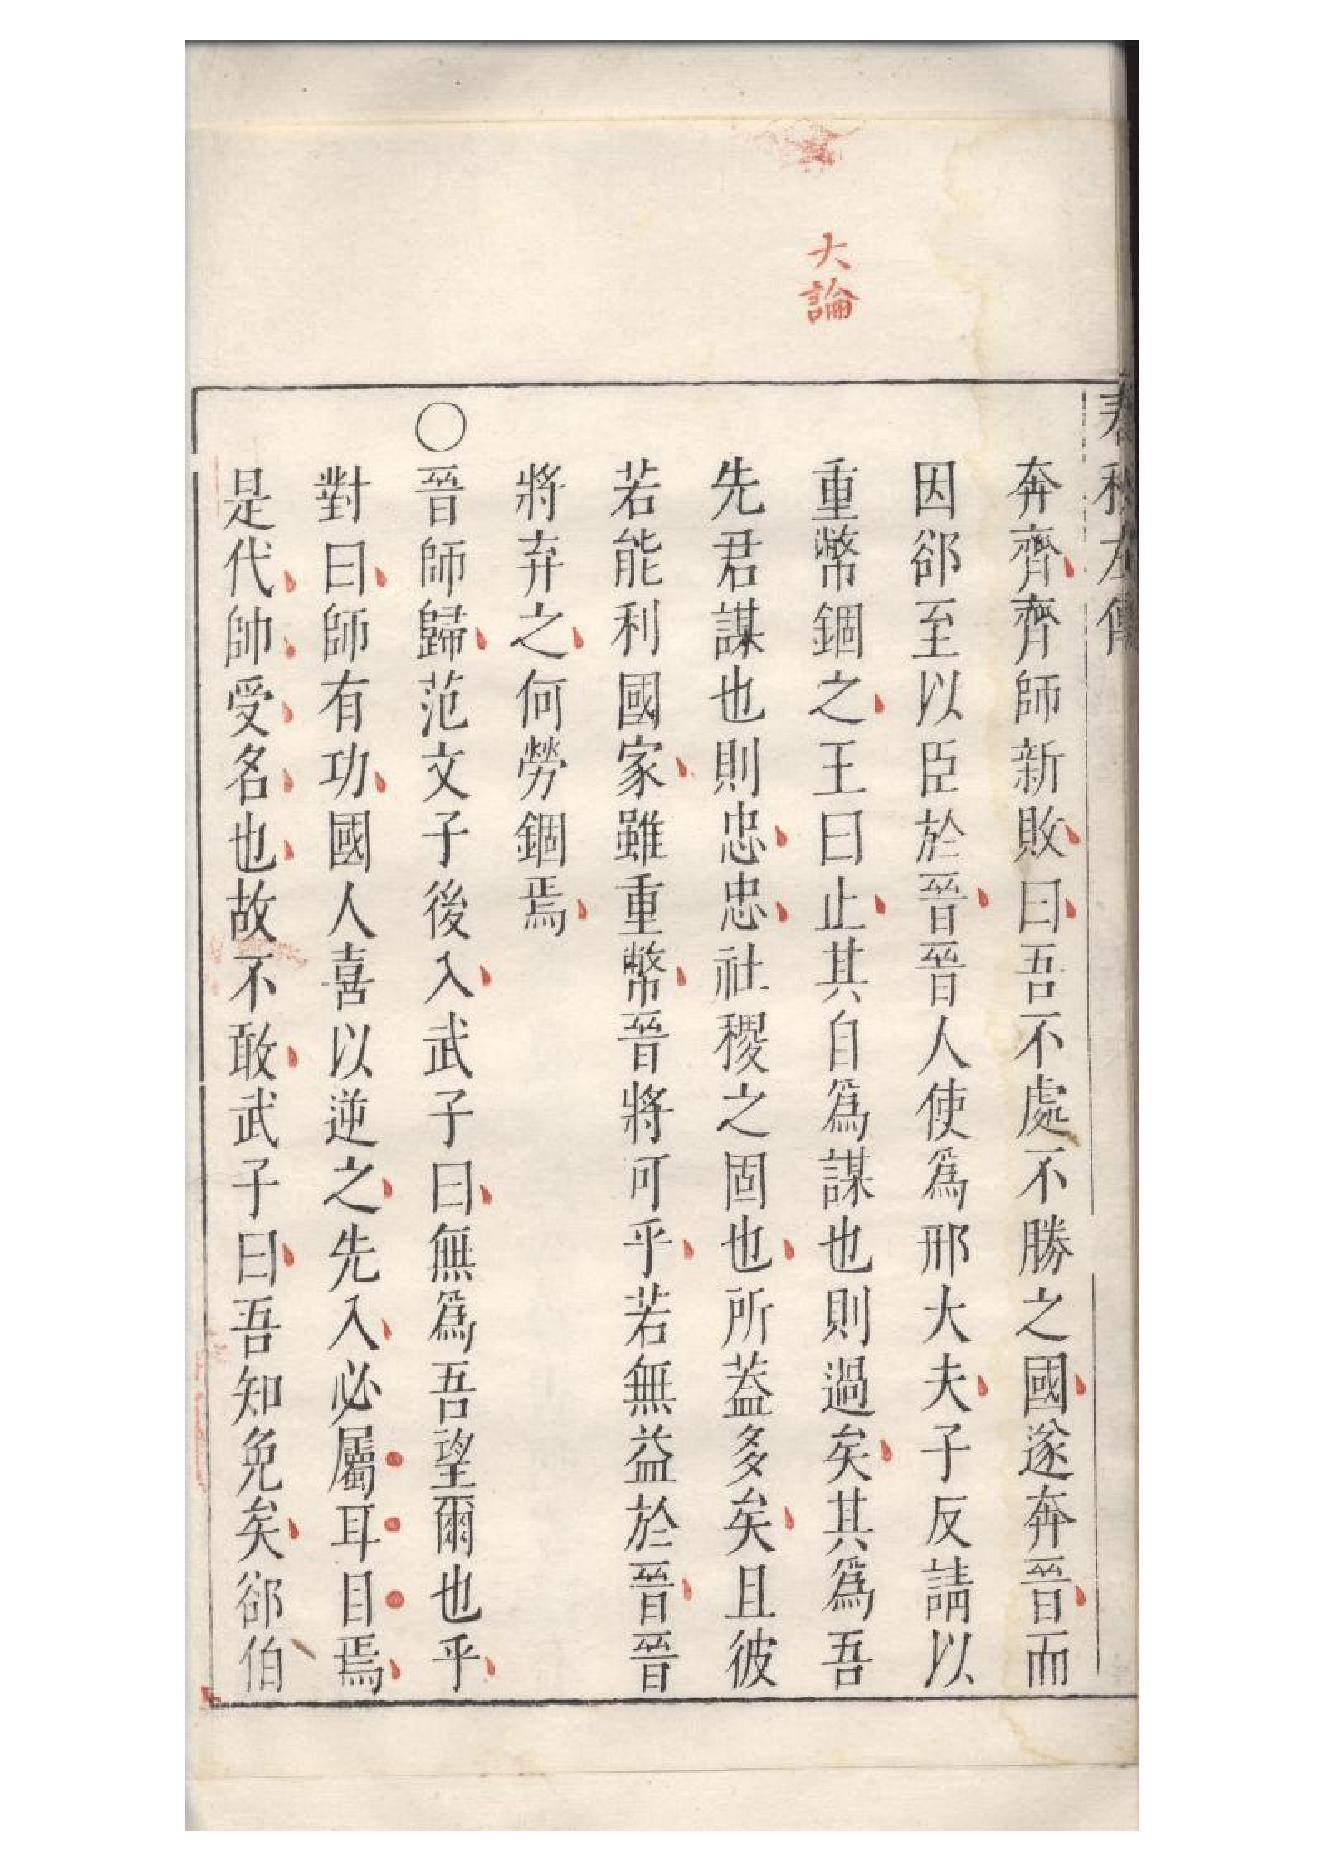 大論
春秋左傳
奔齊齊師新敗曰吾不處不勝之國遂奔晉而
因郤至以臣於晉晉人使爲邢大夫子反請以
重幣錮之王曰止其自爲謀也則過矣其爲吾
先君謀也則忠忠社稷之固也所蓋多矣且彼
若能利國家雖重幣晉將可乎若無益於晉晉
將弃之何勞錮焉
○晉師歸范文子後入武子曰無爲吾望爾也乎
對曰師有功國人喜以逆之先入必屬耳目焉
是代帥受名也故不敢武子曰吾知免矣郤伯